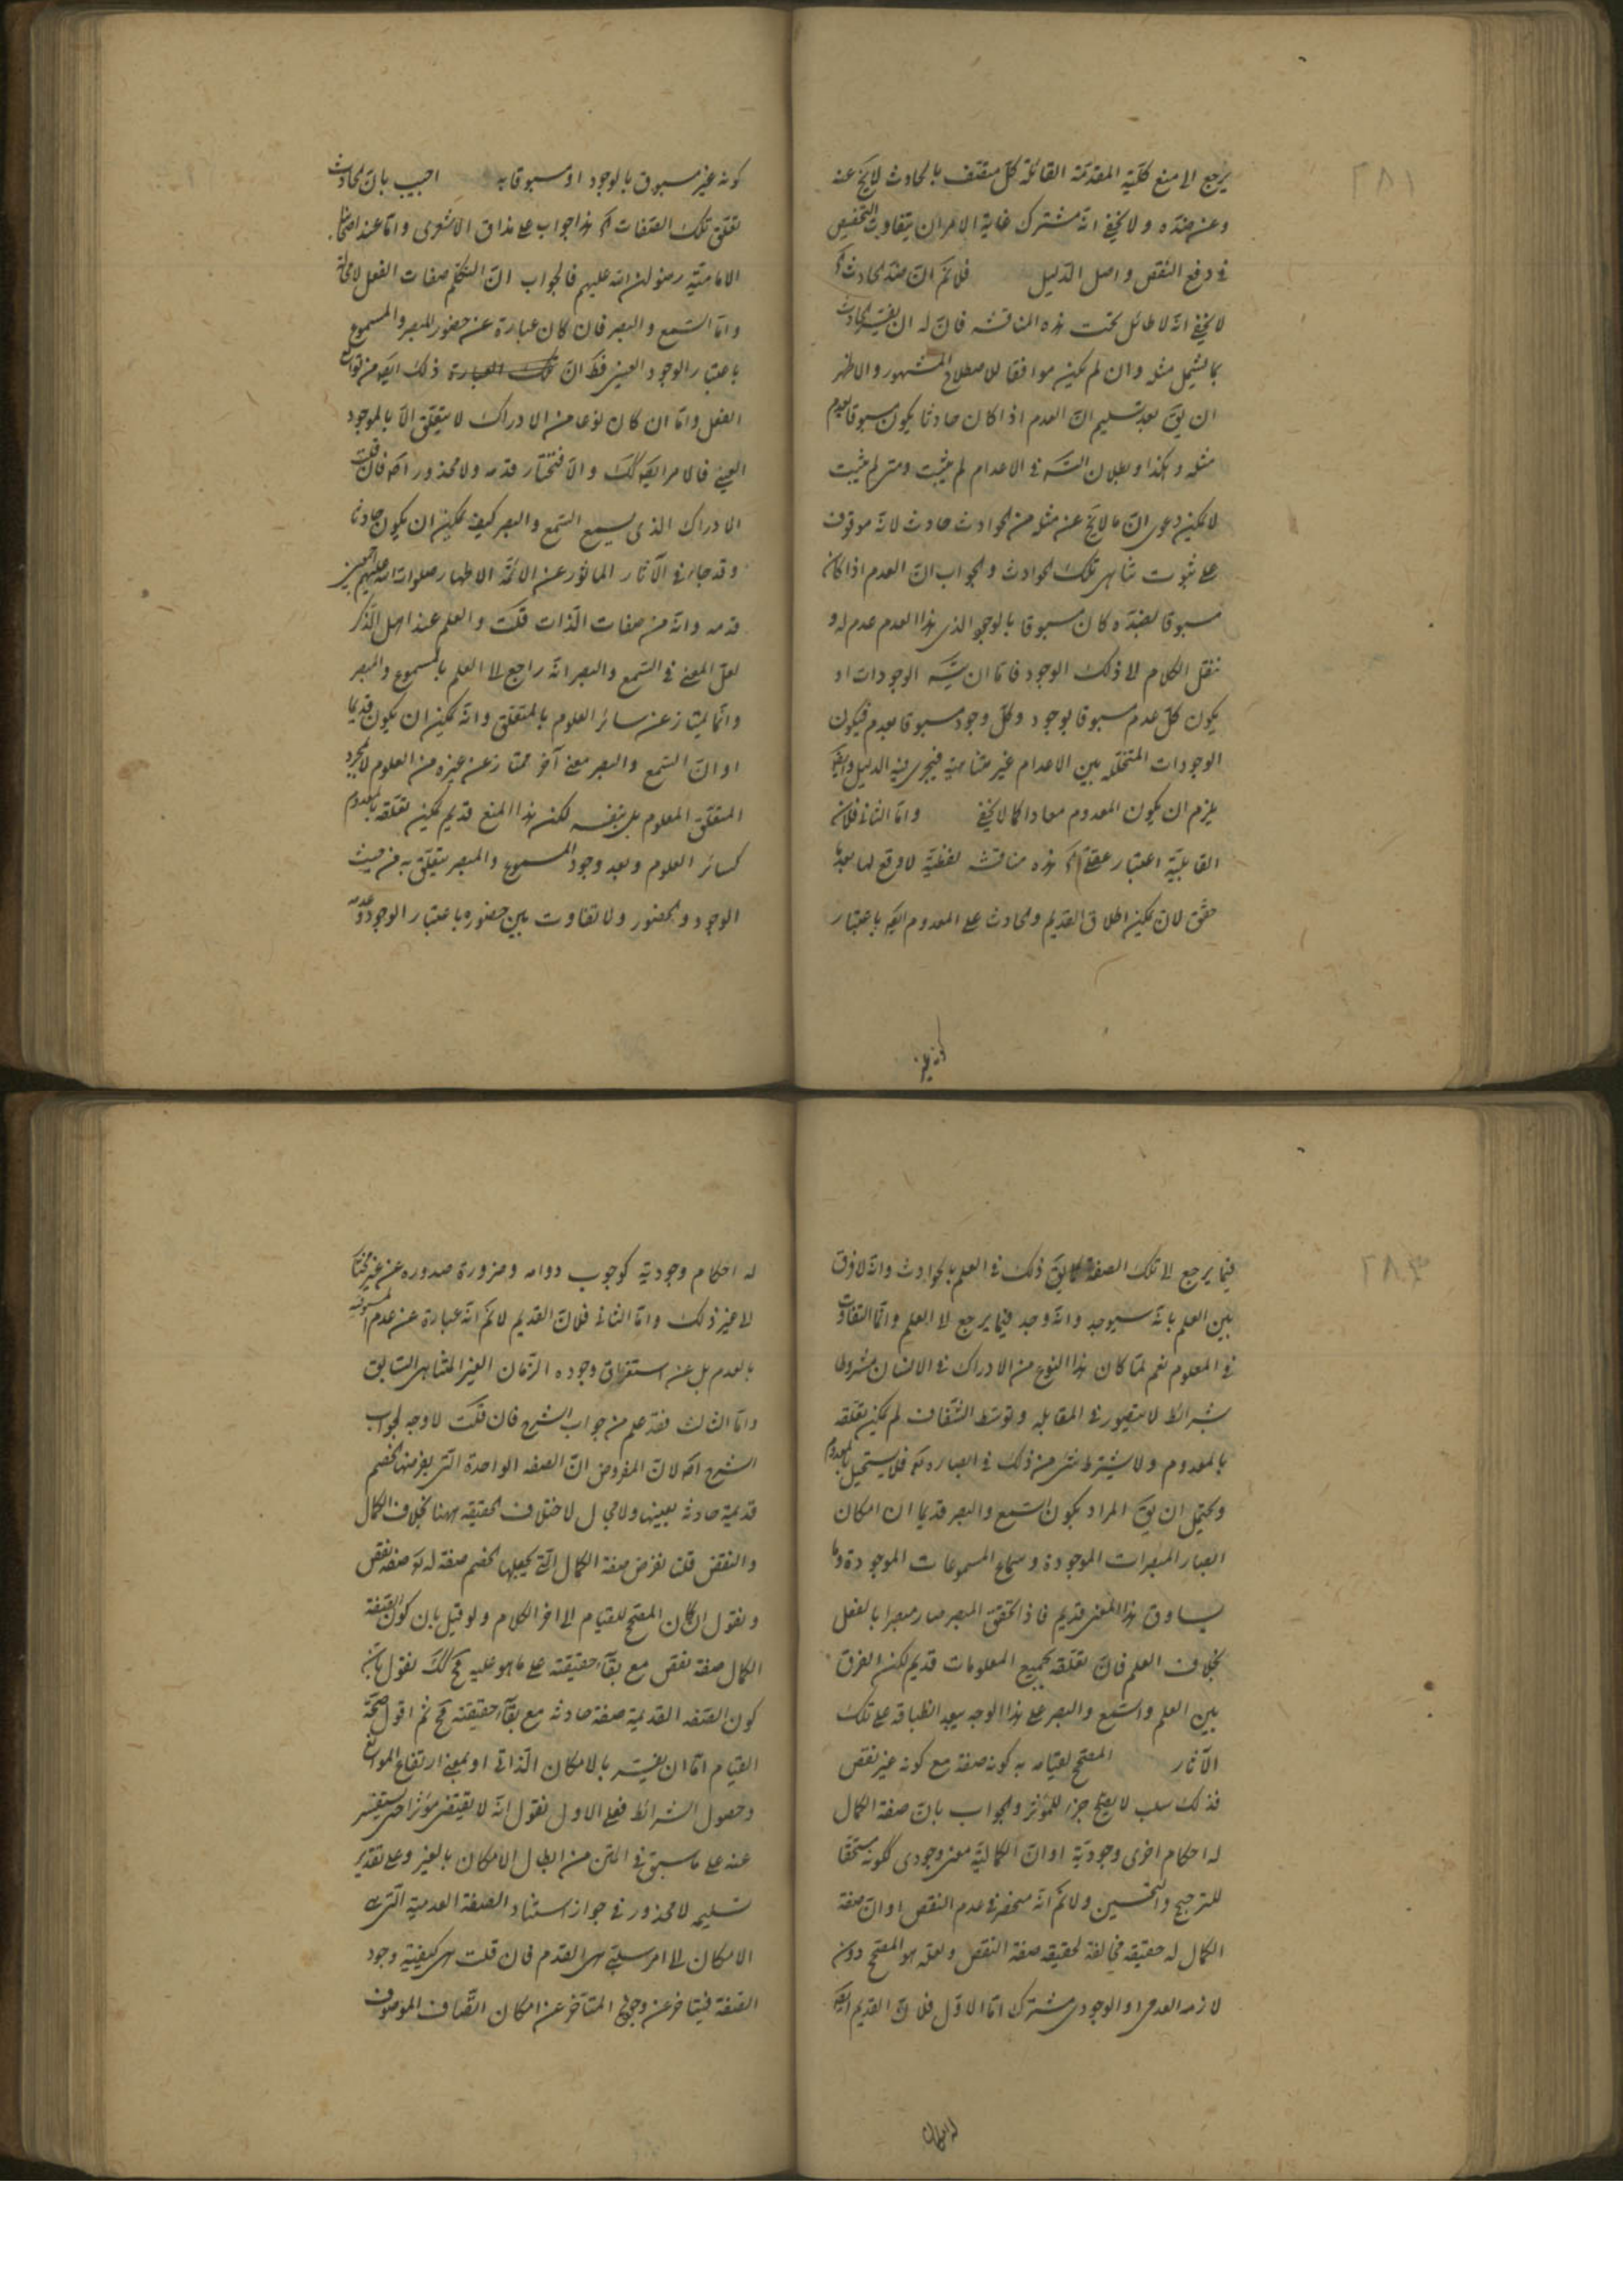 ٢٨١
يرجع الى منع كلية المقدمة القائلة كل متصف بالحادث لا يخ عنه
وعن ضده ولا يخفى انه مشترك غاية الامر ان يتفاوت التخصيص
فى دفع النقض واصل الدليل فلانم ان ضد الحادث
لا يخفى انه لا طائل تحت هذه المناقشه فان له ان يفسر الحادث
بما يشمل مثله وان لم يكن موافقا للاصطلاح المشهور والاظهر
ان يق بعد تسليم ان العدم اذا كان حادثا يكون مسبوقا بعدم
مثله وهكذا وبطلان التسه فى الاعدام لم يثبت ومتى لم يثبت
لا يمكن دعوى ان ما لا يخ عن مثله من الحوادث حادث لانه موقوف
على ثبوت تناهى تلك الحوادث والجواب ان العدم اذا كان
مسبوقا بضده كان مسبوقا بالوجود الذى هذا العدم عدم له و
ننقل الكلام الى ذلك الوجود فاما ان يتسه الوجودات او
يكون كل عدم مسبوقا بوجود وكل وجود مسبوقا بعدم فيكون
الوجودات المتخلله بين الاعدام غير متناهية فيجرى فيه الدليل وايضا
يلزم ان يكون المعدوم معادا كما لا يخفى واما الثانى فلان
القابلية اعتبار عقلى هذه مناقشه لفظية لا وقع لها بعد ما
حقق لان يمكن اطلاق القديم والحادث على المعدوم ايضه باعتبار
كونه غير مسبوق بالوجود او مسبوقا به اجيب بان الحادث
تعلق تلك الصفات هذا جواب على مذاق الاشعرى واما عند اصحابنا
الامامية رضوان الله عليهم فالجواب ان التكلم صفات الفعل لا محالة
واما السمع والبصر فان كان عبارة عن حضور المبصر والمسموع
باعتبار الوجود العينى فظ ان ذلك ايضه من توابع
الفعل واما ان كان نوعا من الادراك لا يتعلق الا بالموجود
العينى فالامر ايضه كك والا فنختار قدمه ولا محذور اصه فان قلت
الادراك الذى يسمى السمع والبصر كيف يمكن ان يكون حادثا
وقد جاء فى الآثار الماثور عن الائمة الاطهار صلوات الله عليهم اجمعين
قدمه وانه من صفات الذات قلت والعلم عند اهل الذكر
لعل المعنى فى السمع والبصر انه راجع الى العلم بالمسموع والمبصر
وانما يمتاز عن سائر العلوم بالمتعلق وانه يمكن ان يكون قديما
او ان السمع والبصر معنى آخر ممتاز عن غيره من العلوم لا بمجرد
المتعلق المعلوم بل بنفسه لكن هذا المنع قديم يمكن تعلقه بالمعدوم
كسائر العلوم وبعد وجود المسموع والمبصر يتعلق به من حيث
الوجود والحضور ولا تفاوت بين حضوره باعتبار الوجود وعدمه
٢٨٣
فيما يرجع الى تلك الصفة كما يق ذلك فى العلم بالحوادث وانه لا فرق
بين العلم بانه سيوجد وانه وجد فيما يرجع الى العلم وانما التفاوت
فى المعلوم نعم لما كان هذا النوع من الادراك فى الانسان مشروطا
بشرائط لا يتصور فى المقابله وتوسط الشفاف لم يمكن تعلقه
بالمعدوم ولا يشترط شئ من ذلك فى ابصاره تع فلا يستحيل بالمعدوم
ويحتمل ان يق المراد بكون السمع والبصر قديما ان امكان
ابصار المبصرات الموجودة وسماع المسموعات الموجودة وما
يساوق هذا المعنى قديم فاذا تحقق المبصر صار مبصرا بالفعل
بخلاف العلم فان تعلقه بجميع المعلومات قديم لكن الفرق
بين العلم والسمع والبصر على هذا الوجه يبعد انطباقه على تلك
الآثار المصحح لقيامه به كونه صفة مع كونه غير نقص
فذلك سلب لا يصلح جزء للمؤثر والجواب بان صفة الكمال
له احكام اخرى وجودية او ان الكمالية معنى وجودى ككونه مستحقا
للترجيح والتحسين ولانم انه منحصر فى عدم النقص او ان صفة
الكمال له حقيقه مخالفة لحقيقه صفة النقص ولعله هو المصحح دون
لازمه العدمى او الوجودى مشترك اما الاول فلان القديم ايضه
له احكام وجودية كوجوب دوامه وضرورة صدوره عن غير المختار
الى غير ذلك واما الثانى فلان القديم لانم انه عبارة عن عدم المسبوقيه
بالعدم بل عن استغراق وجوده الزمان الغير المتناهى السابق
واما الثالث فقد علم من جواب الشرح فان قلت لا وجه لجواب
الشرح اصه لان المفروض ان الصفه الواحدة التى يفرضها الخصم
قديمة حادثه بعينها ولا مجال لاختلاف الحقيقه ههنا بخلاف الكمال
والنقص قلنا نفرض صفة الكمال التى يجعلها الخصم صفة له تع صفه نقص
ونقول ان كان المصحح للقيام الى اخر الكلام ولو قيل بان كون الصفة
الكمال صفة نقص مع بقاء حقيقته على ما هو عليه مح كك نقول بان
كون الصفه القديمة صفة حادثه مع بقاء حقيقته مح ثم اقول صحة
القيام اما ان يفسر بالامكان الذاتى او بمعنى ارتفاع الموانع
وحصول الشرائط فعلى الاول نقول انه لا يقتضى مؤثرا حتى يستفسر
عنه على ما سبق فى المتن من ابطال الامكان بالغير وعلى تقدير
تسليمه لا محذور فى جواز استناد الصفة العدمية التى هى
الامكان الى امر سلبى هى القدم فان قلت هى كيفية وجود
الصفة فيتاخر عن وجودها المتاخر عن امكان اتصاف الموصوف